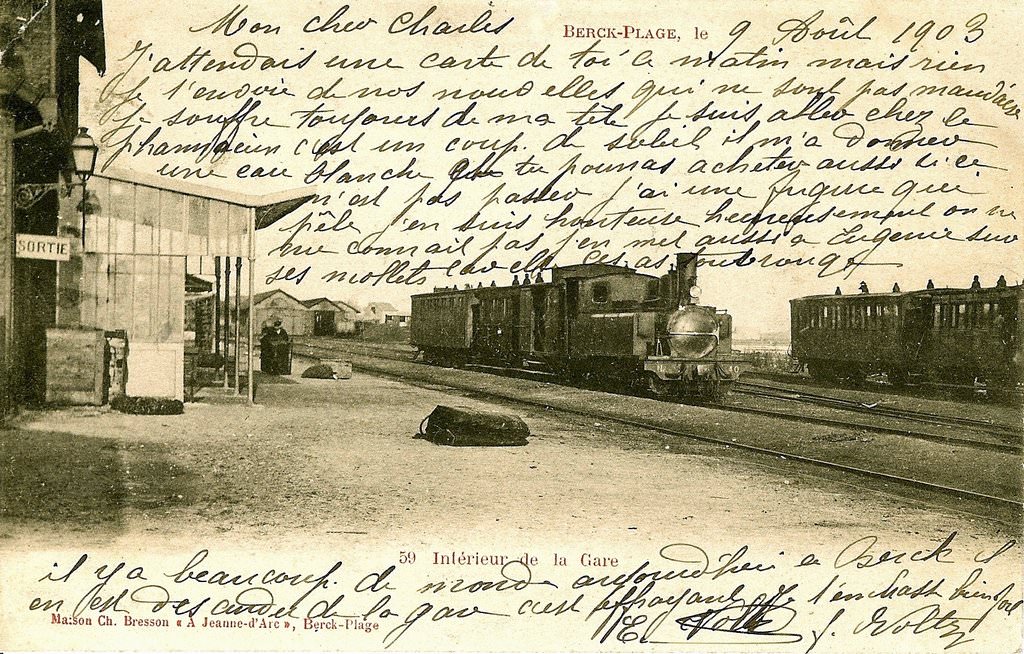 Mon cher Charles
BERCK-PLAGE, le 9 Août 1903
J'attendais une carte de toi ce matin mais rien
Je t'envoie de nos nouvelles qui ne sont pas
Je souffre toujours de ma tête Je suis aller chez le
pharmacien c'est un coup de soleil il m'a donner
une eau blanche que tu pourras acheter aussi si ce
n'est pas passer j'ai une figure qui
pèle j'en suis honteuse heureusement on ne
me connait pas j'en met aussi a Eugenie sur
ses mollets
SORTIE
59 Intérieur de la Gare
il y a beaucoup de monde aujourd'hui a Berck il
en est descendu de la gare c'est effrayant je t'embrasse bien
Maison Ch. Bresson « A Jeanne-d'Arc », Berck-Plage
E.